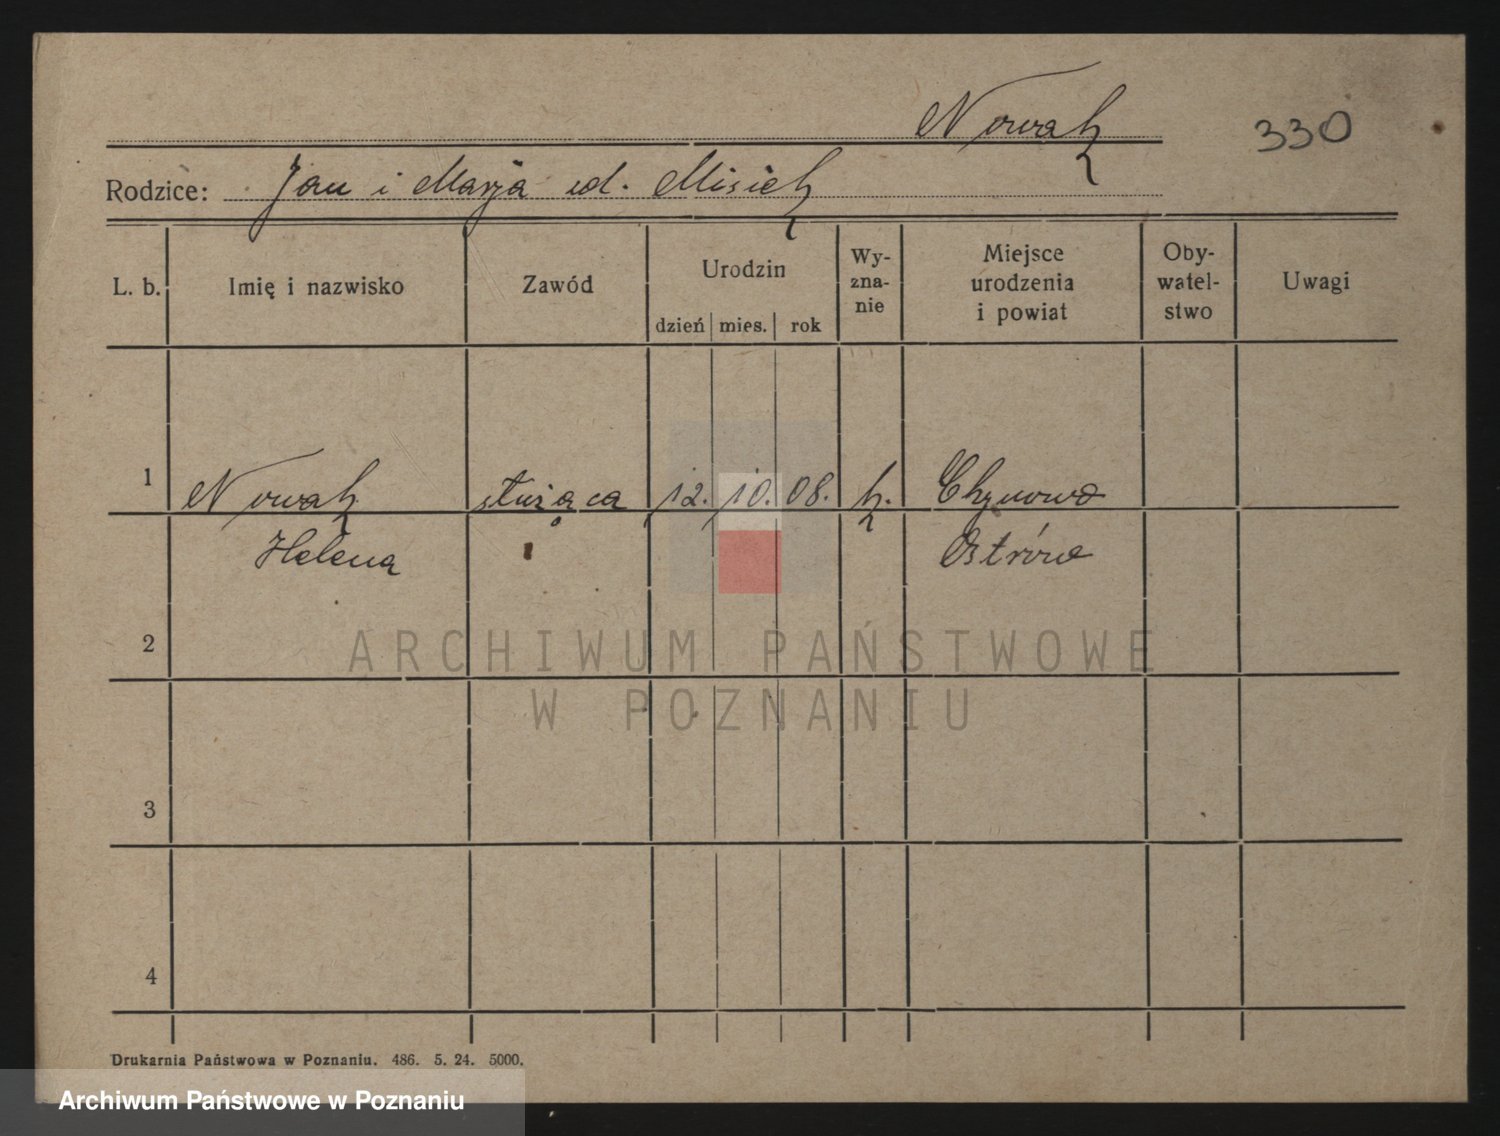 Nowak
330
Rodzice: Jan i Marja ud. Misiek
L. b.
Imię i nazwisko
Zawód
Urodzin
dzień mies. rok
Wy-
zna-
nie
Miejsce
urodzenia
i powiat
Oby-
watel-
stwo
Uwagi
1 Nowak służąca 12. 10. 08. k. Chynowa
Helena Ostrów
2
3
4
ARCHIWUM PAŃSTWOWE
W POZNANIU
Drukarnia Państwowa w Poznaniu. 486. 5. 24. 5000.
Archiwum Państwowe w Poznaniu